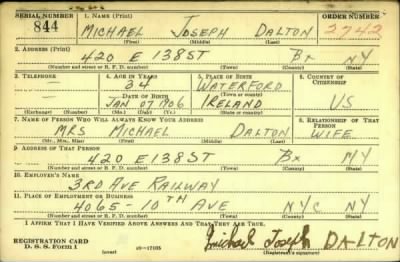 SERIAL NUMBER 1. NAME (Print) ORDER NUMBER
844 MICHAEL JOSEPH DALTON 2742
(First) (Middle) (Last)
2. ADDRESS (Print)
420 E 138 ST BX NY
(Number and street or R. F. D. number) (Town) (County) (State)
3. TELEPHONE 4. AGE IN YEARS 5. PLACE OF BIRTH 6. COUNTRY OF CITIZENSHIP
— 34 WATERFORD
DATE OF BIRTH (Town or county)
— JAN 07 1906 IRELAND US
(Exchange) (Number) (Mo.) (Day) (Yr.) (State or country)
7. NAME OF PERSON WHO WILL ALWAYS KNOW YOUR ADDRESS 8. RELATIONSHIP OF THAT PERSON
MRS MICHAEL DALTON WIFE
(Mr., Mrs., Miss) (First) (Middle) (Last)
9. ADDRESS OF THAT PERSON
420 E 138 ST BX NY
(Number and street or R. F. D. number) (Town) (County) (State)
10. EMPLOYER'S NAME
3RD AVE RAILWAY
11. PLACE OF EMPLOYMENT OR BUSINESS
4065 - 10TH AVE NYC NY
(Number and street or R. F. D. number) (Town) (County) (State)
I AFFIRM THAT I HAVE VERIFIED ABOVE ANSWERS AND THAT THEY ARE TRUE.
REGISTRATION CARD Michael Joseph DALTON
D. S. S. Form 1 16—17105 (Registrant's signature)